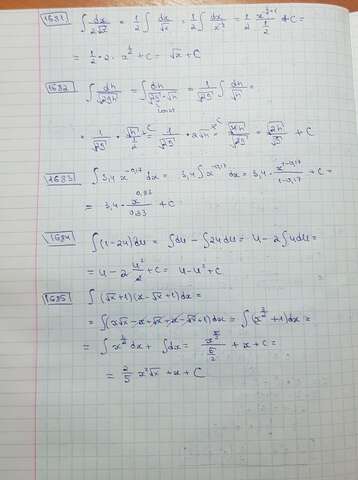 1681 ∫ dx/(2√x) = 1/2 ∫ dx/√x = 1/2 ∫ dx/x^(1/2) = 1/2 · x^(-1/2+1)/(1/2) + C =
= 1/2 · 2 · x^(1/2) + C = √x + C
1682 ∫ dh/√(2gh) = ∫ dh/(√(2g) · √h) = 1/√(2g) ∫ dh/√h =
const
= 1/√(2g) · √h/(1/2) + C = 1/√(2g) · 2√h + C = √(4h)/√(2g) = √(2h)/√g + C
1683 ∫ 3,4 x^(-0,17) dx = 3,4 ∫ x^(-0,17) dx = 3,4 · x^(1-0,17)/(1-0,17) + C =
= 3,4 · x^(0,83)/0,83 + C
1684 ∫ (1-2u)du = ∫ du - ∫ 2u du = u - 2 ∫ u du =
= u - 2 u²/2 + C = u - u² + C
1685 ∫ (√x+1)(x-√x+1)dx =
= ∫ (x√x - x + √x + x - √x + 1)dx = ∫ (x^(3/2) + 1)dx =
= ∫ x^(3/2) dx + ∫ dx = x^(5/2)/(5/2) + x + C =
= 2/5 x²√x + x + C